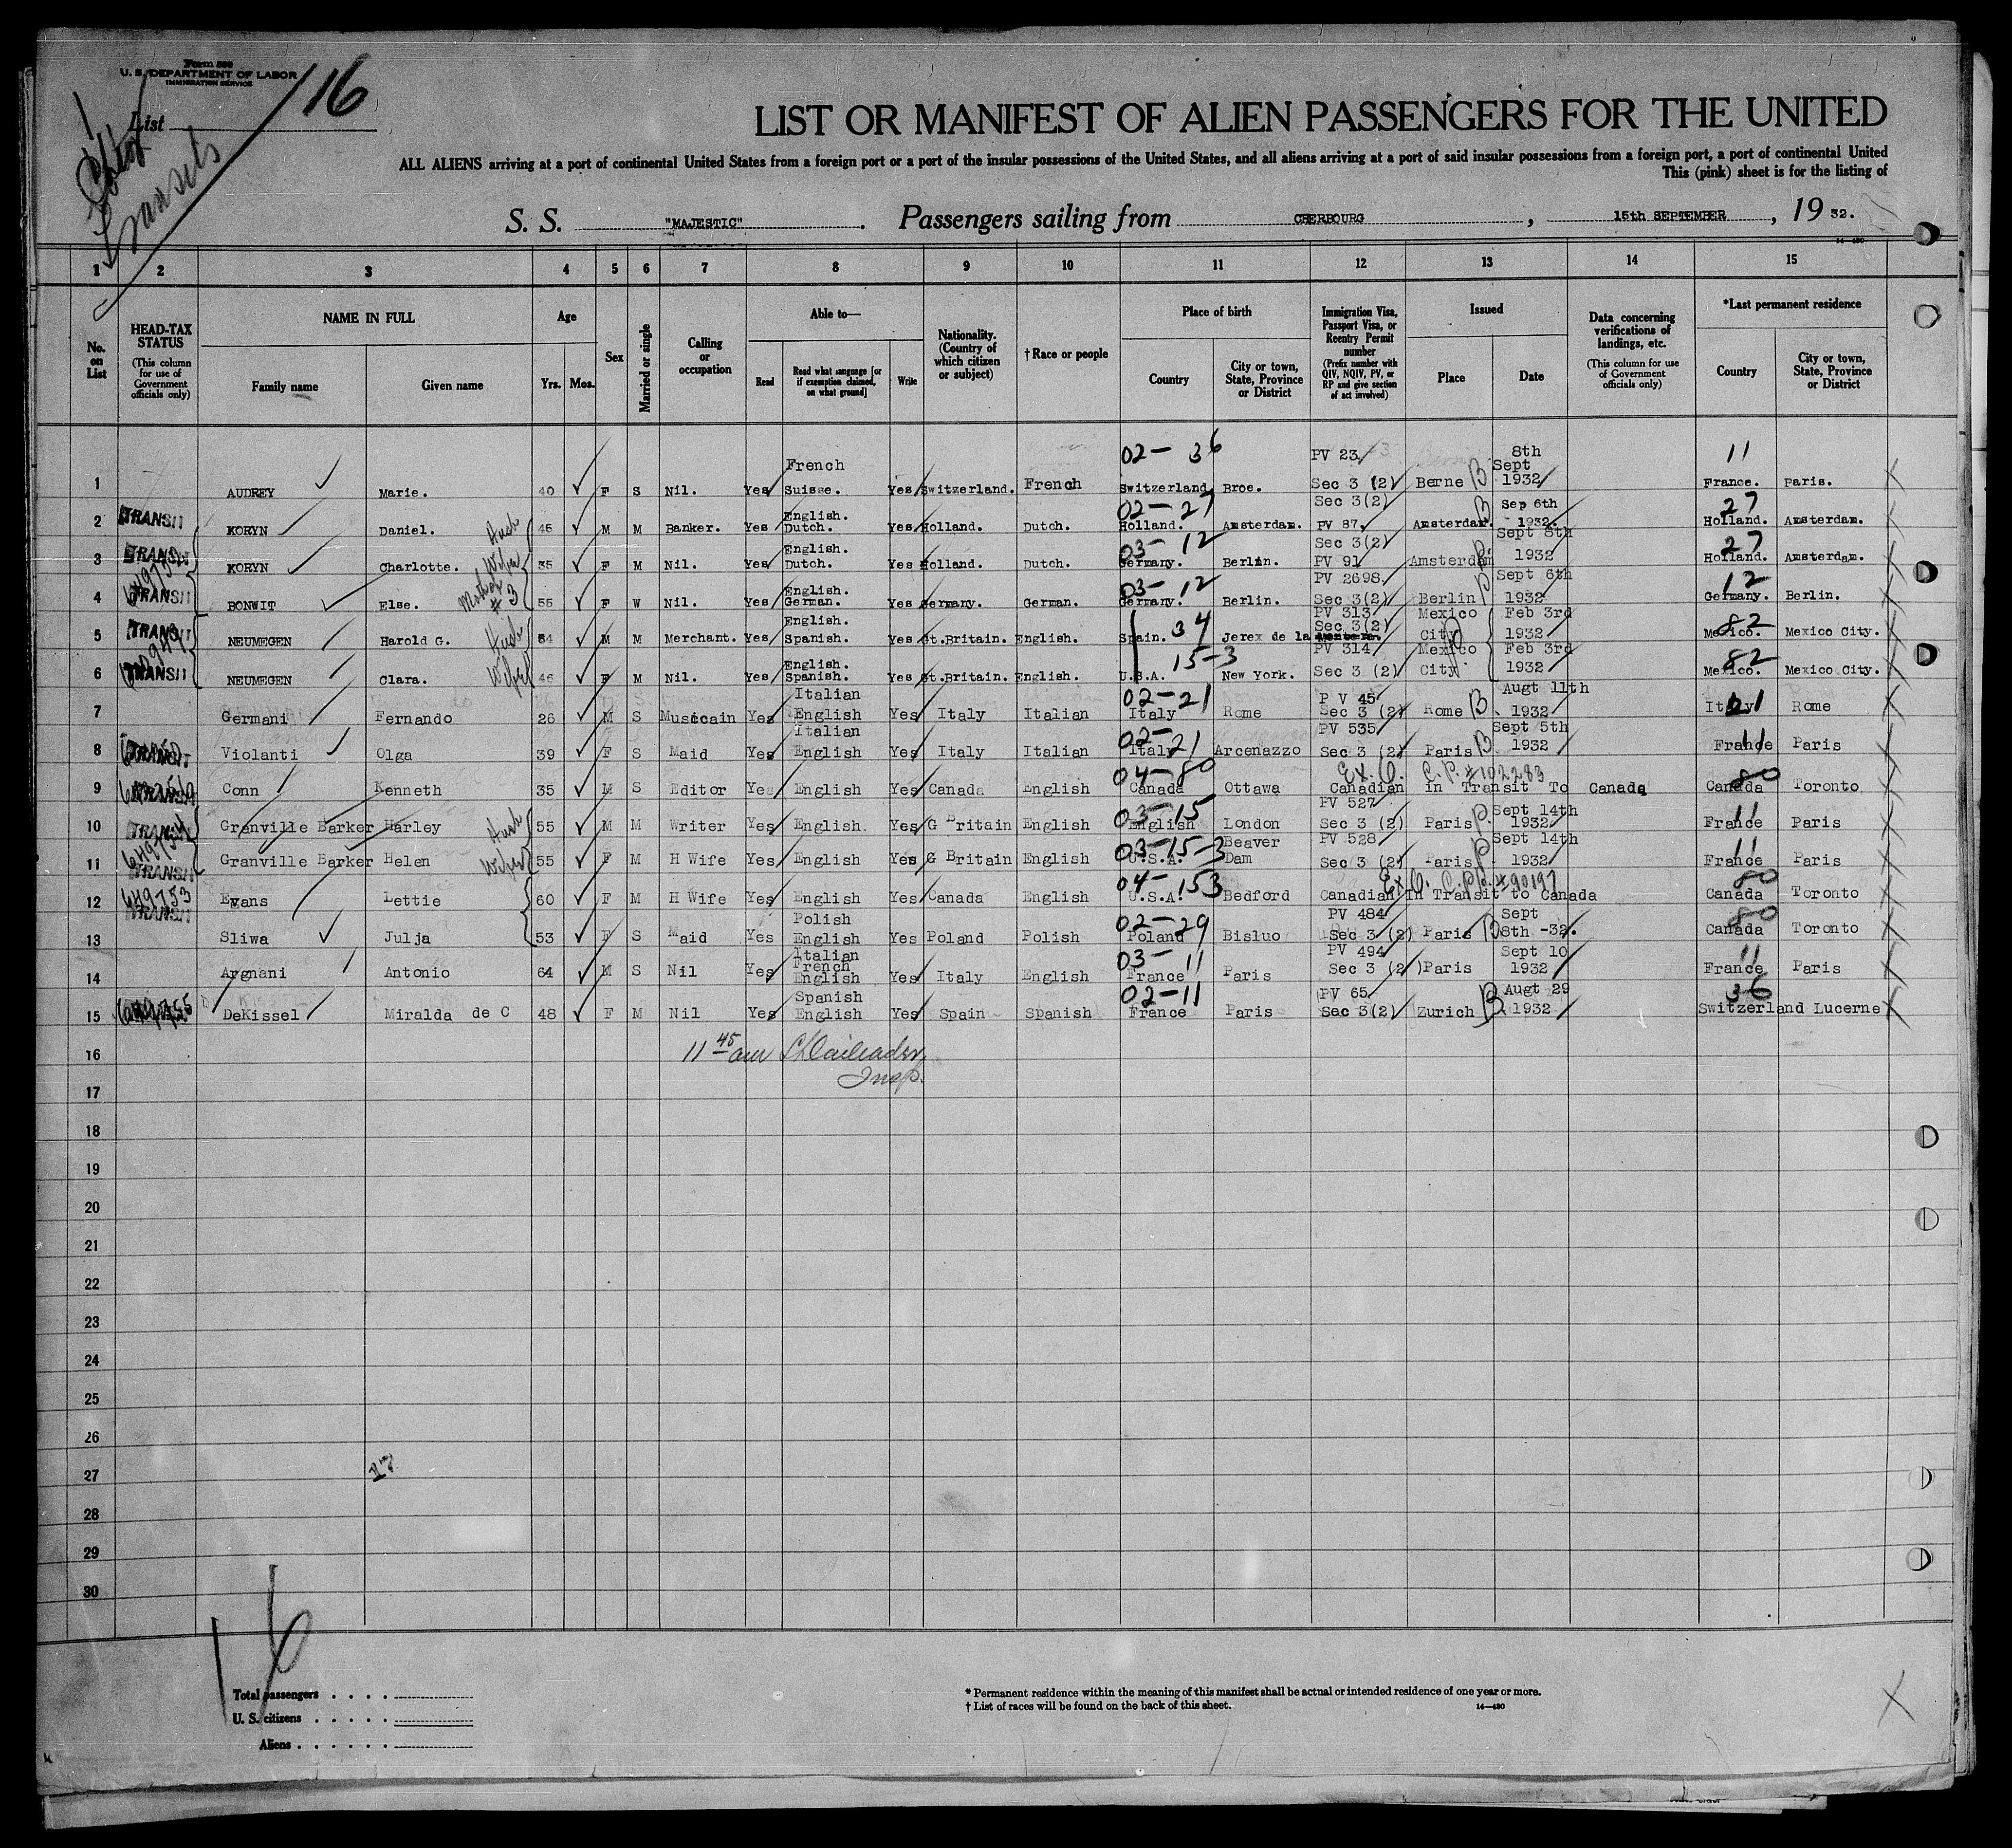 Form 500
U. S. DEPARTMENT OF LABOR
IMMIGRATION SERVICE
List 16
Transits
LIST OR MANIFEST OF ALIEN PASSENGERS FOR THE UNITED
ALL ALIENS arriving at a port of continental United States from a foreign port or a port of the insular possessions of the United States, and all aliens arriving at a port of said insular possessions from a foreign port, a port of continental United
This (pink) sheet is for the listing of
S. S. "MAJESTIC". Passengers sailing from CHERBOURG, 15th SEPTEMBER, 1932.
14-430
1 2 3 4 5 6 7 8 9 10 11 12 13 14 15
No. on List
HEAD-TAX STATUS (This column for use of Government officials only)
NAME IN FULL Family name Given name
Age Yrs. Mos.
Sex
Married or single
Calling or occupation
Able to— Read Read what language [or if exemption claimed, on what ground] Write
Nationality. (Country of which citizen or subject)
†Race or people
Place of birth Country City or town, State, Province or District
Immigration Visa, Passport Visa, or Reentry Permit number (Prefix number with QIV, NQIV, PV, or RP and give section of act involved)
Issued Place Date
Data concerning verifications of landings, etc. (This column for use of Government officials only)
*Last permanent residence Country City or town, State, Province or District
1 AUDREY Marie. 40 F S Nil. Yes French Suisse. Yes Switzerland. French 02-36 Switzerland Broc. PV 23 Sec 3 (2) Berne 8th Sept 1932 11 France. Paris.
2 TRANSIT KORYN Daniel. Husb 45 M M Banker. Yes English. Dutch. Yes Holland. Dutch. 02-27 Holland. Amsterdam. Sec 3(2) PV 87. Amsterdam. Sep 6th 1932. 27 Holland. Amsterdam.
3 TRANSIT KORYN Charlotte. Wife 35 F M Nil. Yes English. Dutch. Yes Holland. Dutch. 03-12 Germany. Berlin. Sec 3(2) PV 91 Amsterdam Sept 8th 1932 27 Holland. Amsterdam.
4 TRANSIT BONWIT Else. Mother of #3 55 F W Nil. Yes English. German. Yes Germany. German. 03-12 Germany. Berlin. PV 2698 Sec 3(2) Berlin Sept 6th 1932 12 Germany. Berlin.
5 TRANSIT NEUMEGEN Harold G. Husb 54 M M Merchant. Yes English. Spanish. Yes Gt.Britain. English. 34 Spain. Jerex de la PV 313 Sec 3(2) Mexico City Feb 3rd 1932 82 Mexico. Mexico City.
6 TRANSIT NEUMEGEN Clara. Wife 46 F M Nil. Yes English. Spanish. Yes Gt.Britain. English. 15-3 U.S.A. New York. PV 314 Sec 3 (2) Mexico City Feb 3rd 1932 82 Mexico. Mexico City.
7 Germani Fernando 26 M S Musicain Yes Italian English Yes Italy Italian 02-21 Italy Rome P V 45 Sec 3 (2) Rome Augt 11th 1932 21 Italy Rome
8 TRANSIT Violanti Olga 39 F S Maid Yes Italian English Yes Italy Italian 02-21 Italy Arcenazzo PV 535 Sec 3 (2) Paris Sept 5th 1932 11 France Paris
9 TRANSIT Conn Kenneth 35 M S Editor Yes English Yes Canada English 04-80 Canada Ottawa Ex. C. C.P. #102283 Canadian In Transit To Canada 80 Canada Toronto
10 TRANSIT Granville Barker Harley Husb 55 M M Writer Yes English Yes G Britain English 03-15 English London PV 527 Sec 3 (2) Paris Sept 14th 1932 11 France Paris
11 649754 TRANSIT Granville Barker Helen Wife 55 F M H Wife Yes English Yes G Britain English 03-15-3 U.S.A. Beaver Dam PV 528 Sec 3 (2) Paris Sept 14th 1932 11 France Paris
12 649753 TRANSIT Evans Lettie 60 F M H Wife Yes English Yes Canada English 04-153 U.S.A. Bedford Ex C. C.P. #90197 Canadian In Transit to Canada 80 Canada Toronto
13 Sliwa Julja 53 F S Maid Yes Polish English Yes Poland Polish 02-29 Poland Bisluo PV 484 Sec 3 (2) Paris Sept 8th -32. 80 Canada Toronto
14 Argnani Antonio 64 M S Nil Yes Italian French English Yes Italy English 03-11 France Paris PV 494 Sec 3 (2) Paris Sept 10 1932 11 France Paris
15 DeKissel Miralda de C 48 F M Nil Yes Spanish English Yes Spain Spanish 02-11 France Paris PV 65 Sec 3(2) Zurich Augt 29 1932 36 Switzerland Lucerne
16 11 45 am Insp.
17
18
19
20
21
22
23
24
25
26
27 17
28
29
30
16
Total passengers
U. S. citizens
Aliens
* Permanent residence within the meaning of this manifest shall be actual or intended residence of one year or more.
† List of races will be found on the back of this sheet. 14-430